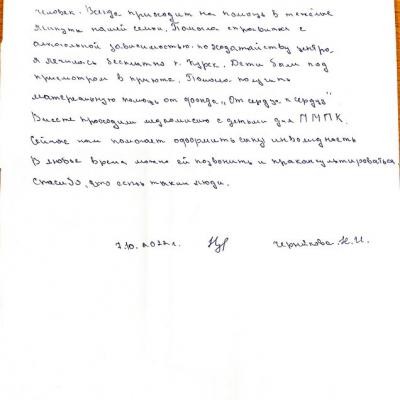 человек. Всегда приходит на помощь в тяжёлые
минуты нашей семьи. Помогла справиться с
алкогольной зависимостью. по ходатайству центра,
я лечилась бесплатно г. Курск. Дети были под
присмотром в приюте. Помогла получить
материальную помощь от фонда "От сердца к сердцу"
Вместе проходили медкомиссию с детьми для ПМПК.
Сейчас нам помогает оформить сыну инвалидность
В любое время можно ей позвонить и проконсультироваться.
Спасибо, что есть такие люди.
7.10.2022 г. Чернякова Н.И.